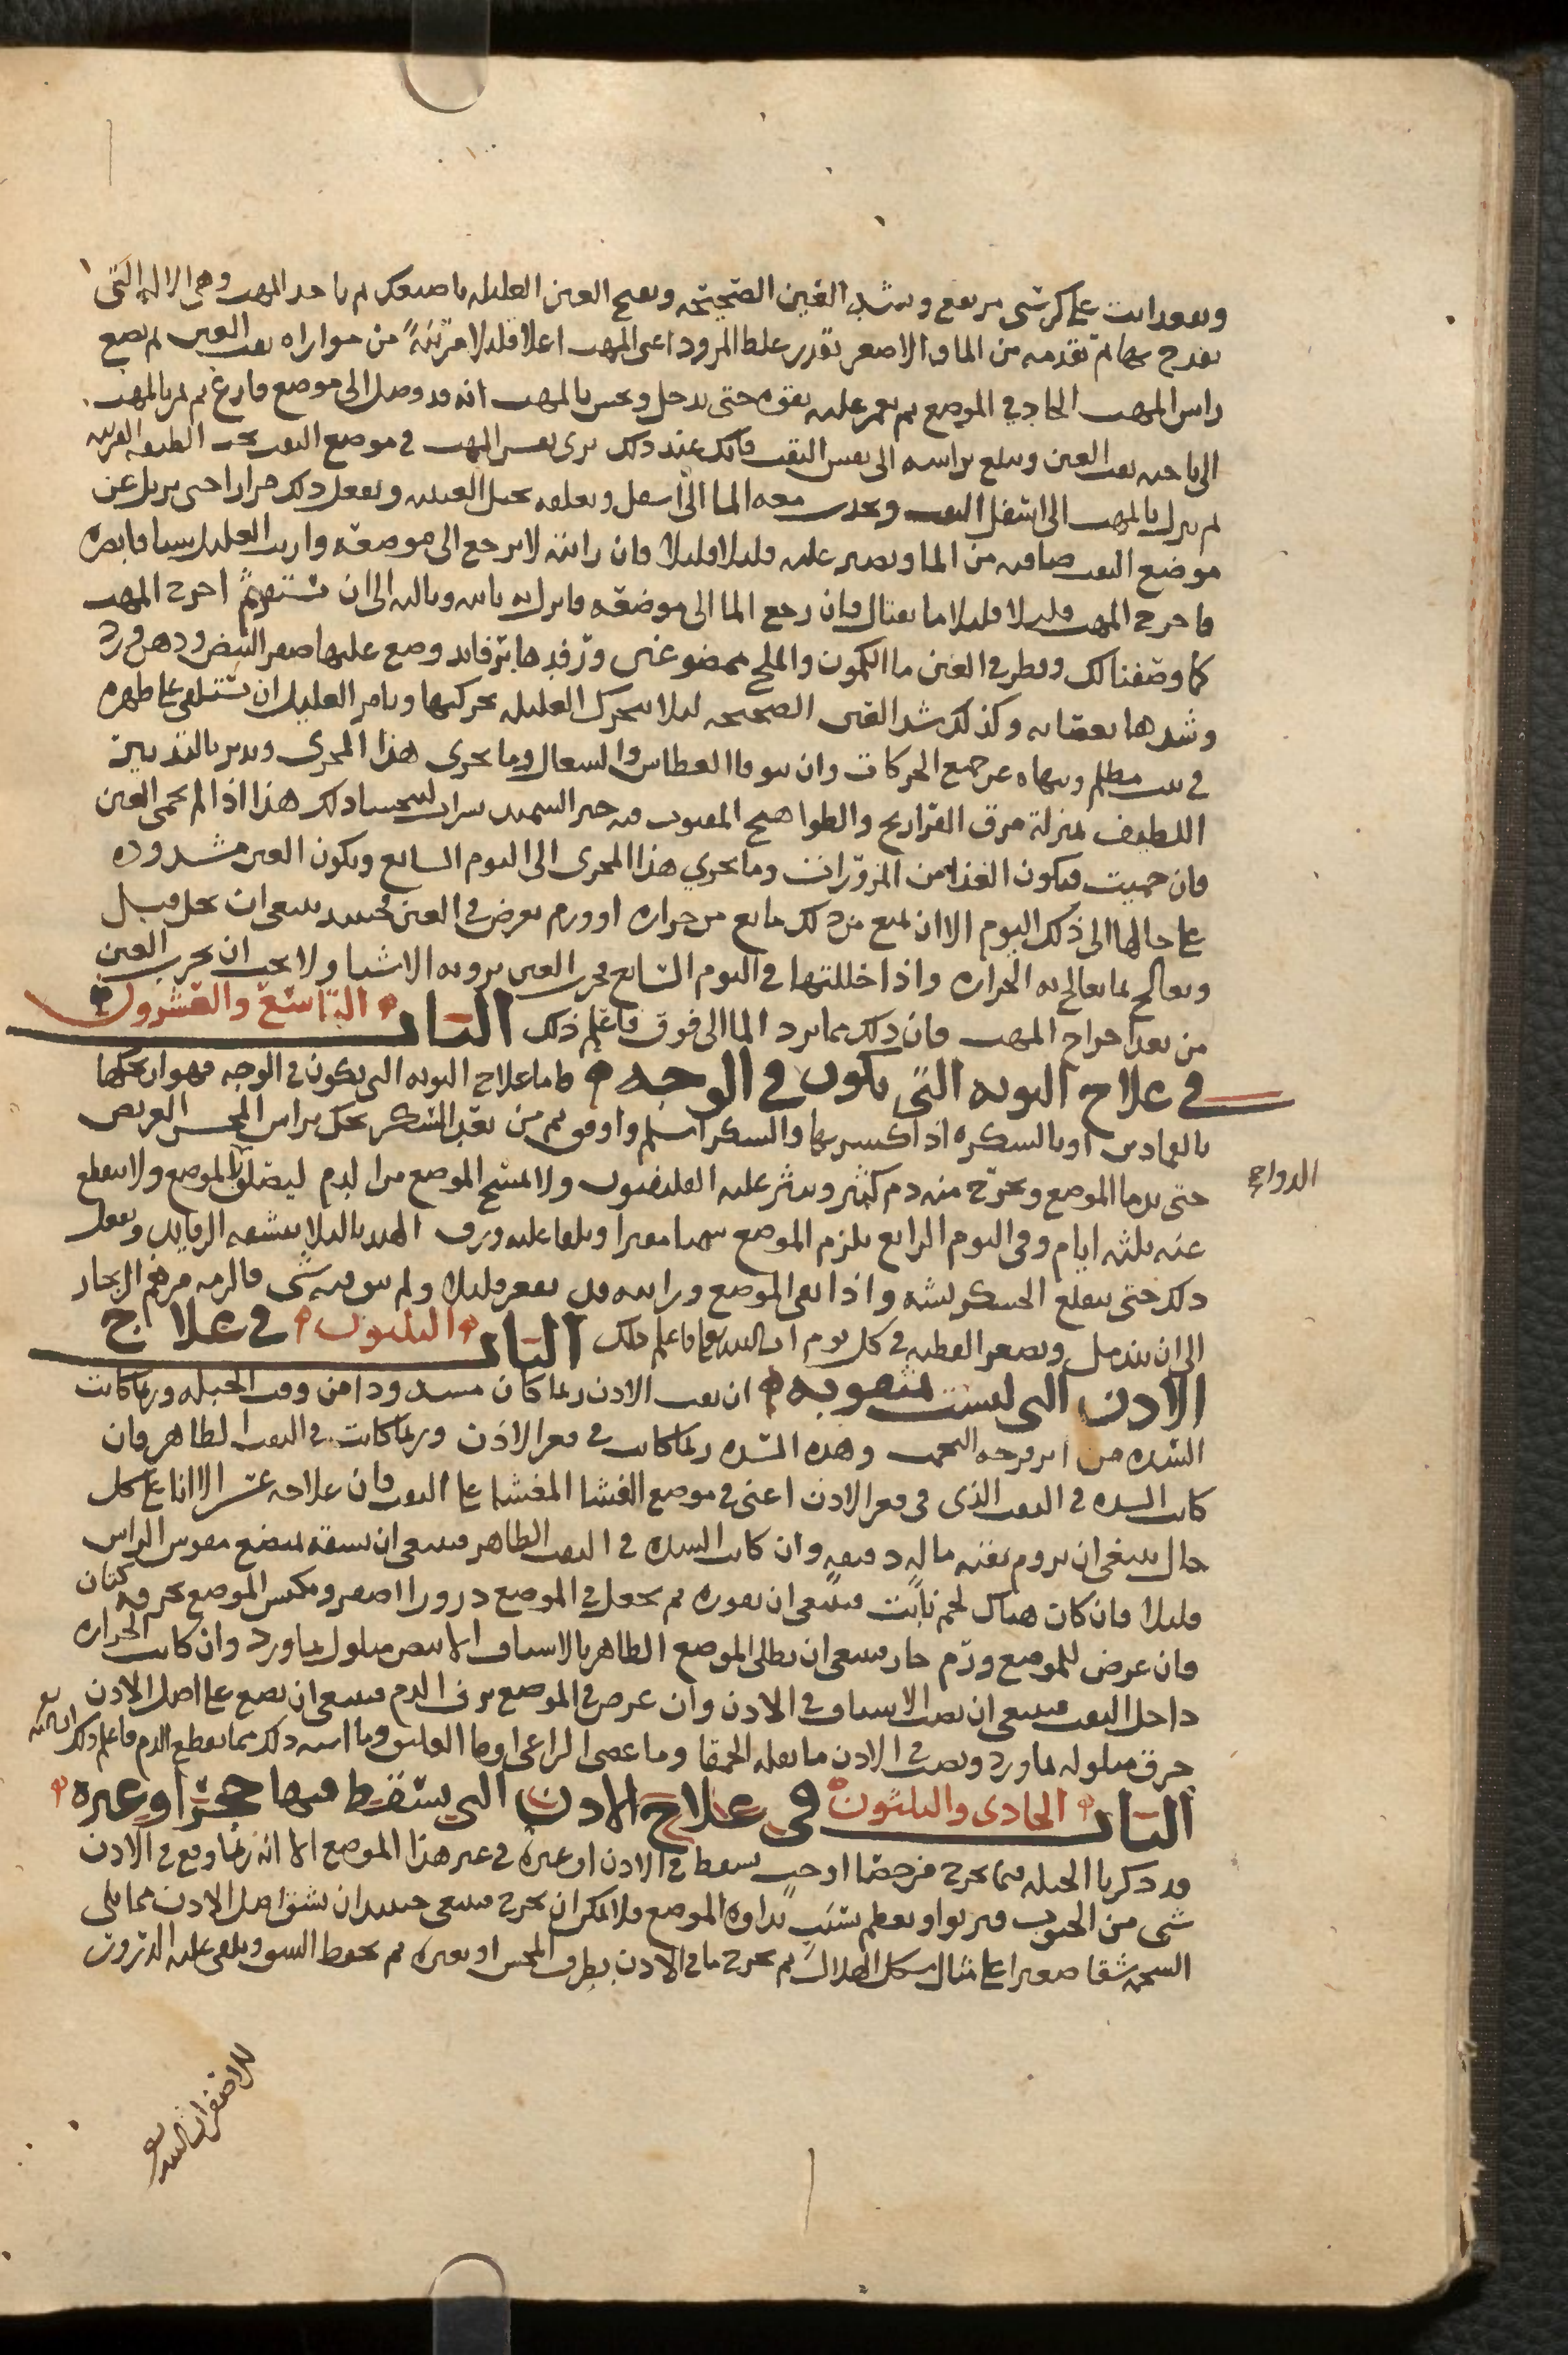 وتقعد انت على كرسي مرتفع وتشد العين الصحيحة وتفتح العين العليلة باصبعك ثم تاخد المهت وهي الالة التي
يقدح بها ثم تقدمه من الماق الاصغر بقدر غلظ المرود اعني المهت اعلا قليلا من موازاه ثقب العين ثم تضع
راس المهت الحاد في الموضع ثم تغمز عليه بقوه حتى يدخل وتحس بالمهت انه قد وصل الى موضع فارغ ثم تمر بالمهت
الى ناحيه ثقب العين وتبلغ براسه الى نفس الثقب فانك عند ذلك ترى نفس المهت في موضع الثقب تحت الطبقه القرنيه
ثم تنزل بالمهت الى اسفل الثقب وتجذب معه الما الى اسفل وتعلقه بخمل العنبيه وتفعل ذلك مرارا حتى يزول عن
موضع الثقب ما فيه من الما وتصبر عليه قليلا قليلا فان رايته لا يرجع الى موضعه واريت العليل شيا فابصره
فاخرج المهت قليلا قليلا بانفتال فان رجع الما الى موضعه فانزل به ثانيه وثالثه الى ان يستقر ثم اخرج المهت
كما وصفنا لك وقطر في العين ما الكمون والملح ممضوغين ورفدها برفايد وضع عليها صفر البيض ودهن ورد
وشدها بعصابه وكذلك شد العين الصحيحه ليلا تتحرك العليله بحركتها وتامر العليل ان يستلقي على ظهره
في بيت مظلم وتنهاه عن جميع الحركات وان يتوقا العطاس والسعال وما يجري هذا المجرى ويدبر بالتدبير
اللطيف بمنزلة مرق الفراريج والطواهيج المفتوت فيه خبز السميد هذا اذا لم تحمى العين
فان حميت فيكون الغذا من المزورات وما يجري هذا المجرى الى اليوم السابع ويكون العين مشدوده
على حالها الى ذلك اليوم الا ان يمنع من ذلك مانع من حراره او ورم يعرض في العين فحينيد ينبغي ان تحل قبل
وتعالج بما يعالج به الحراره واذا حللتها في اليوم السابع فجرب العين برويه الاشيا ولا يجب ان تجرب العين
من بعد اخراج المهت فان ذلك مما يرد الما الى فوق فاعلم ذلك الباب التاسع والعشرون
في علاج التوته التي تكون في الوجه فاما علاج التوته التي يكون في الوجه فهو ان تحكها
بالقمادين او بالسكره اذا كسرتها والسكر اسلم واوفق ثم من بعد السكر تحك براس المجس العريض
الدواج
حتى يدما الموضع ويخرج منه دم كثير وينثر عليه القلدفيون ولا تمسح الموضع من الدم ليتعلق بالموضع ولا ينقطع
عنه ثلثه ايام وفي اليوم الرابع يلزم الموضع سمنا مفترا ويلقا عليه ورق الهندبا ليلا ينشفه الرفايد وتفعل
ذلك حتى ينقلع الخشكريشه واذا نقي الموضع ورايته قد تقعر قليلا ولم يبق فيه شي فالزمه مرهم الزنجار
الى ان يندمل وتصغر القطنه في كل يوم ان شا الله تعالى فاعلم ذلك الباب الثلثون في علاج
الاذن التي ليست بمثقوبه ان ثقب الاذن ربما كان مسدودا من وقت الجبله وربما كانت
السده من اثر قرحه التحمت وهذه السده ربما كانت في قعر الاذن وربما كانت في الثقب الظاهر فان
كانت السده في الثقب الذي في قعر الاذن اعني في موضع الغشا المغشا على الثقب فان علاجه عسر الا انا على كل
حال ينبغي ان نروم ثقبه بآله دقيقه وان كانت السده في الثقب الظاهر فينبغي ان نشقه بمبضع مقوس الراس
قليلا فان كان هناك لحم نابت فينبغي ان نقوره ثم نجعل في الموضع ذرورا اصفر ونكبس الموضع بخرقه كتان
فان عرض للموضع ورم حار فينبغي ان نطلى الموضع الظاهر بالاسياف الابيض مبلول بماورد وان كانت الحراره
داخل الثقب فينبغي ان نصب الاسياف في الاذن وان عرض في الموضع نزف الدم فينبغي ان نضع على اصل الاذن
خرق مبلوله بماورد ونصب في الاذن ما بقله الحمقا وما عصى الراعي او ما العليق وما اشبه ذلك مما يقطع الدم فاعلم ذلك
الباب الحادي والثلثون في علاج الاذن التي يسقط فيها حجر او غيره
قد ذكرنا الحيله فيما يخرج من حصا او حب يسقط في الاذن او غيره في غير هذا الموضع الا انه ربما وقع في الاذن
شي من الحبوب فيربوا ويعظم بسبب نداوه الموضع فلا يمكن ان يخرج فينبغي حينيد ان نشق اصل الاذن مما يلي
الشحمه شقا صغيرا على مثال شكل الهلال ثم نخرج ما في الاذن بطرف المجس او بغيره ثم نخيط الشق ويلقى عليه الذرور